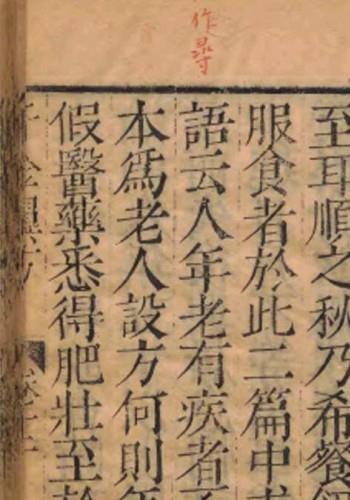 作尋
至耳順之秋乃希餐
服食者於此二篇中
語云人年老有疾者
本為老人設方何則
假醫藥悉得肥壯至於